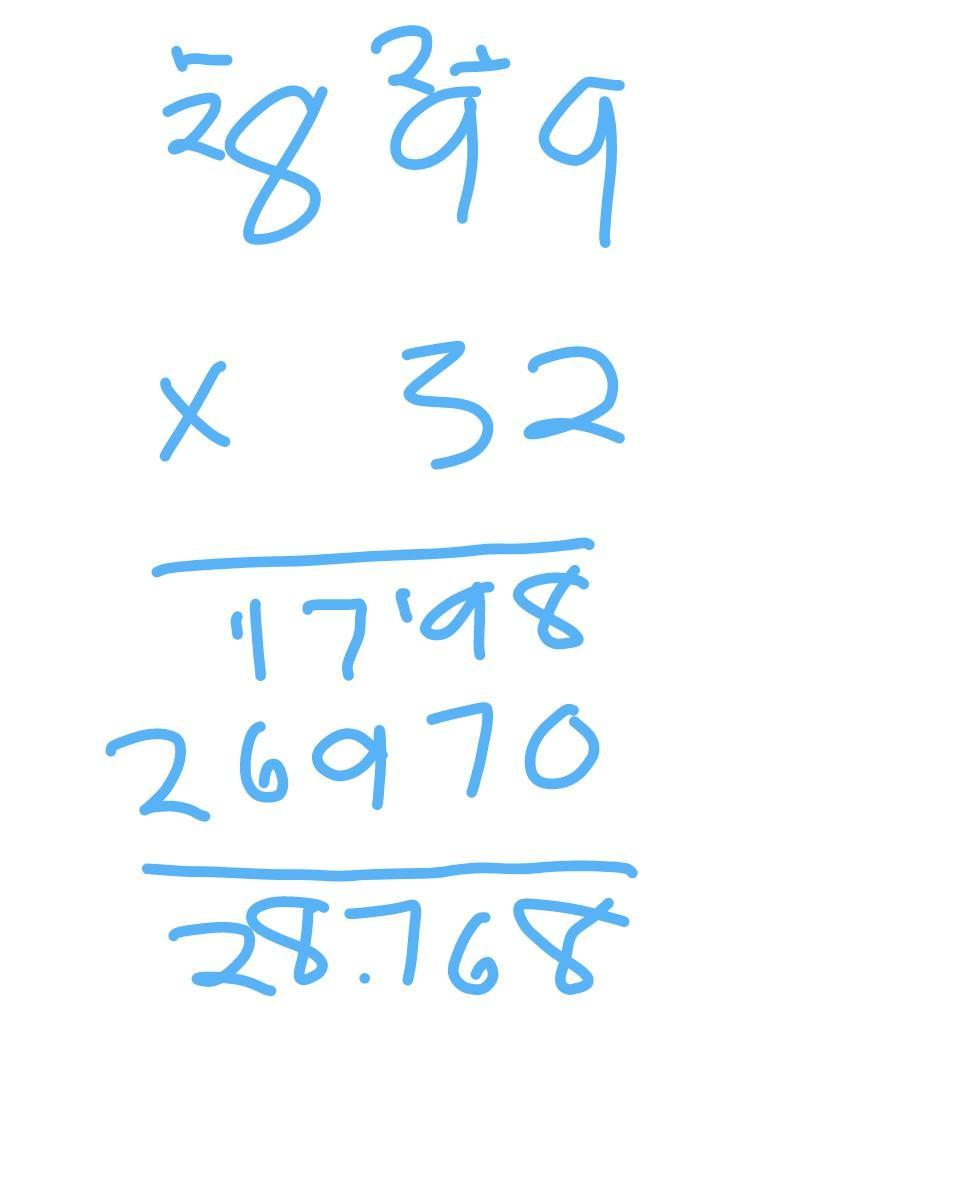 1 2 1
2 8 9 9
x 32
1 1 7 1 9 8
2 6 9 7 0
28.768